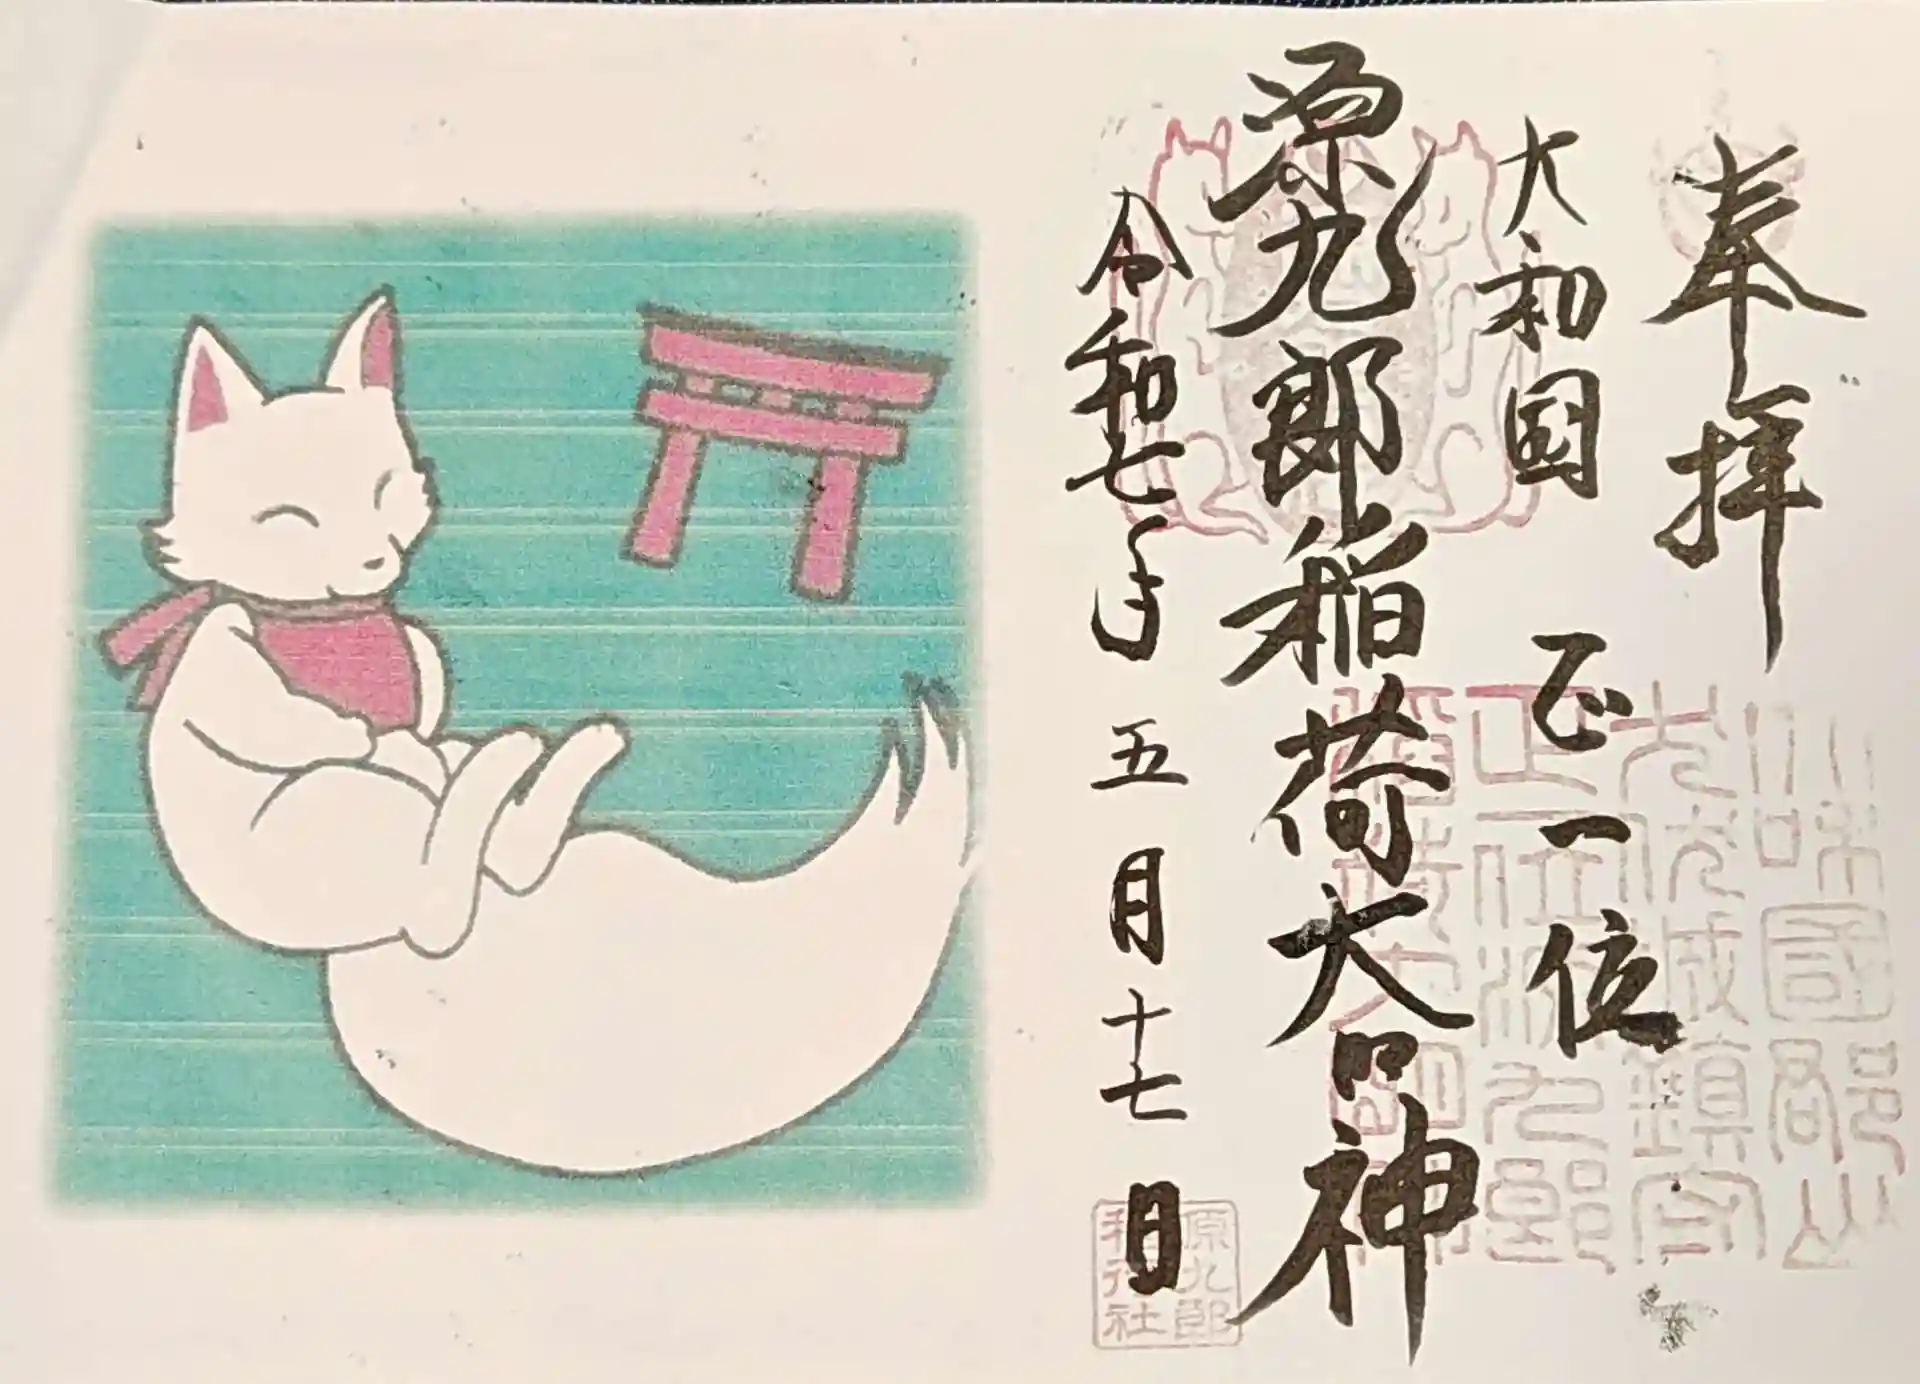 奉拝
大和国 正一位
源九郎稲荷大明神
令和七年 五月十七日
源九郎
稲荷社